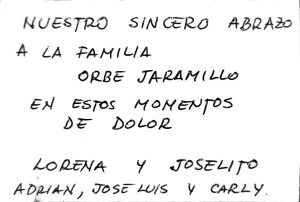 NUESTRO SINCERO ABRAZO
A LA FAMILIA
ORBE JARAMILLO
EN ESTOS MOMENTOS
DE DOLOR
LORENA Y JOSELITO
ADRIAN, JOSE LUIS Y CARLY.